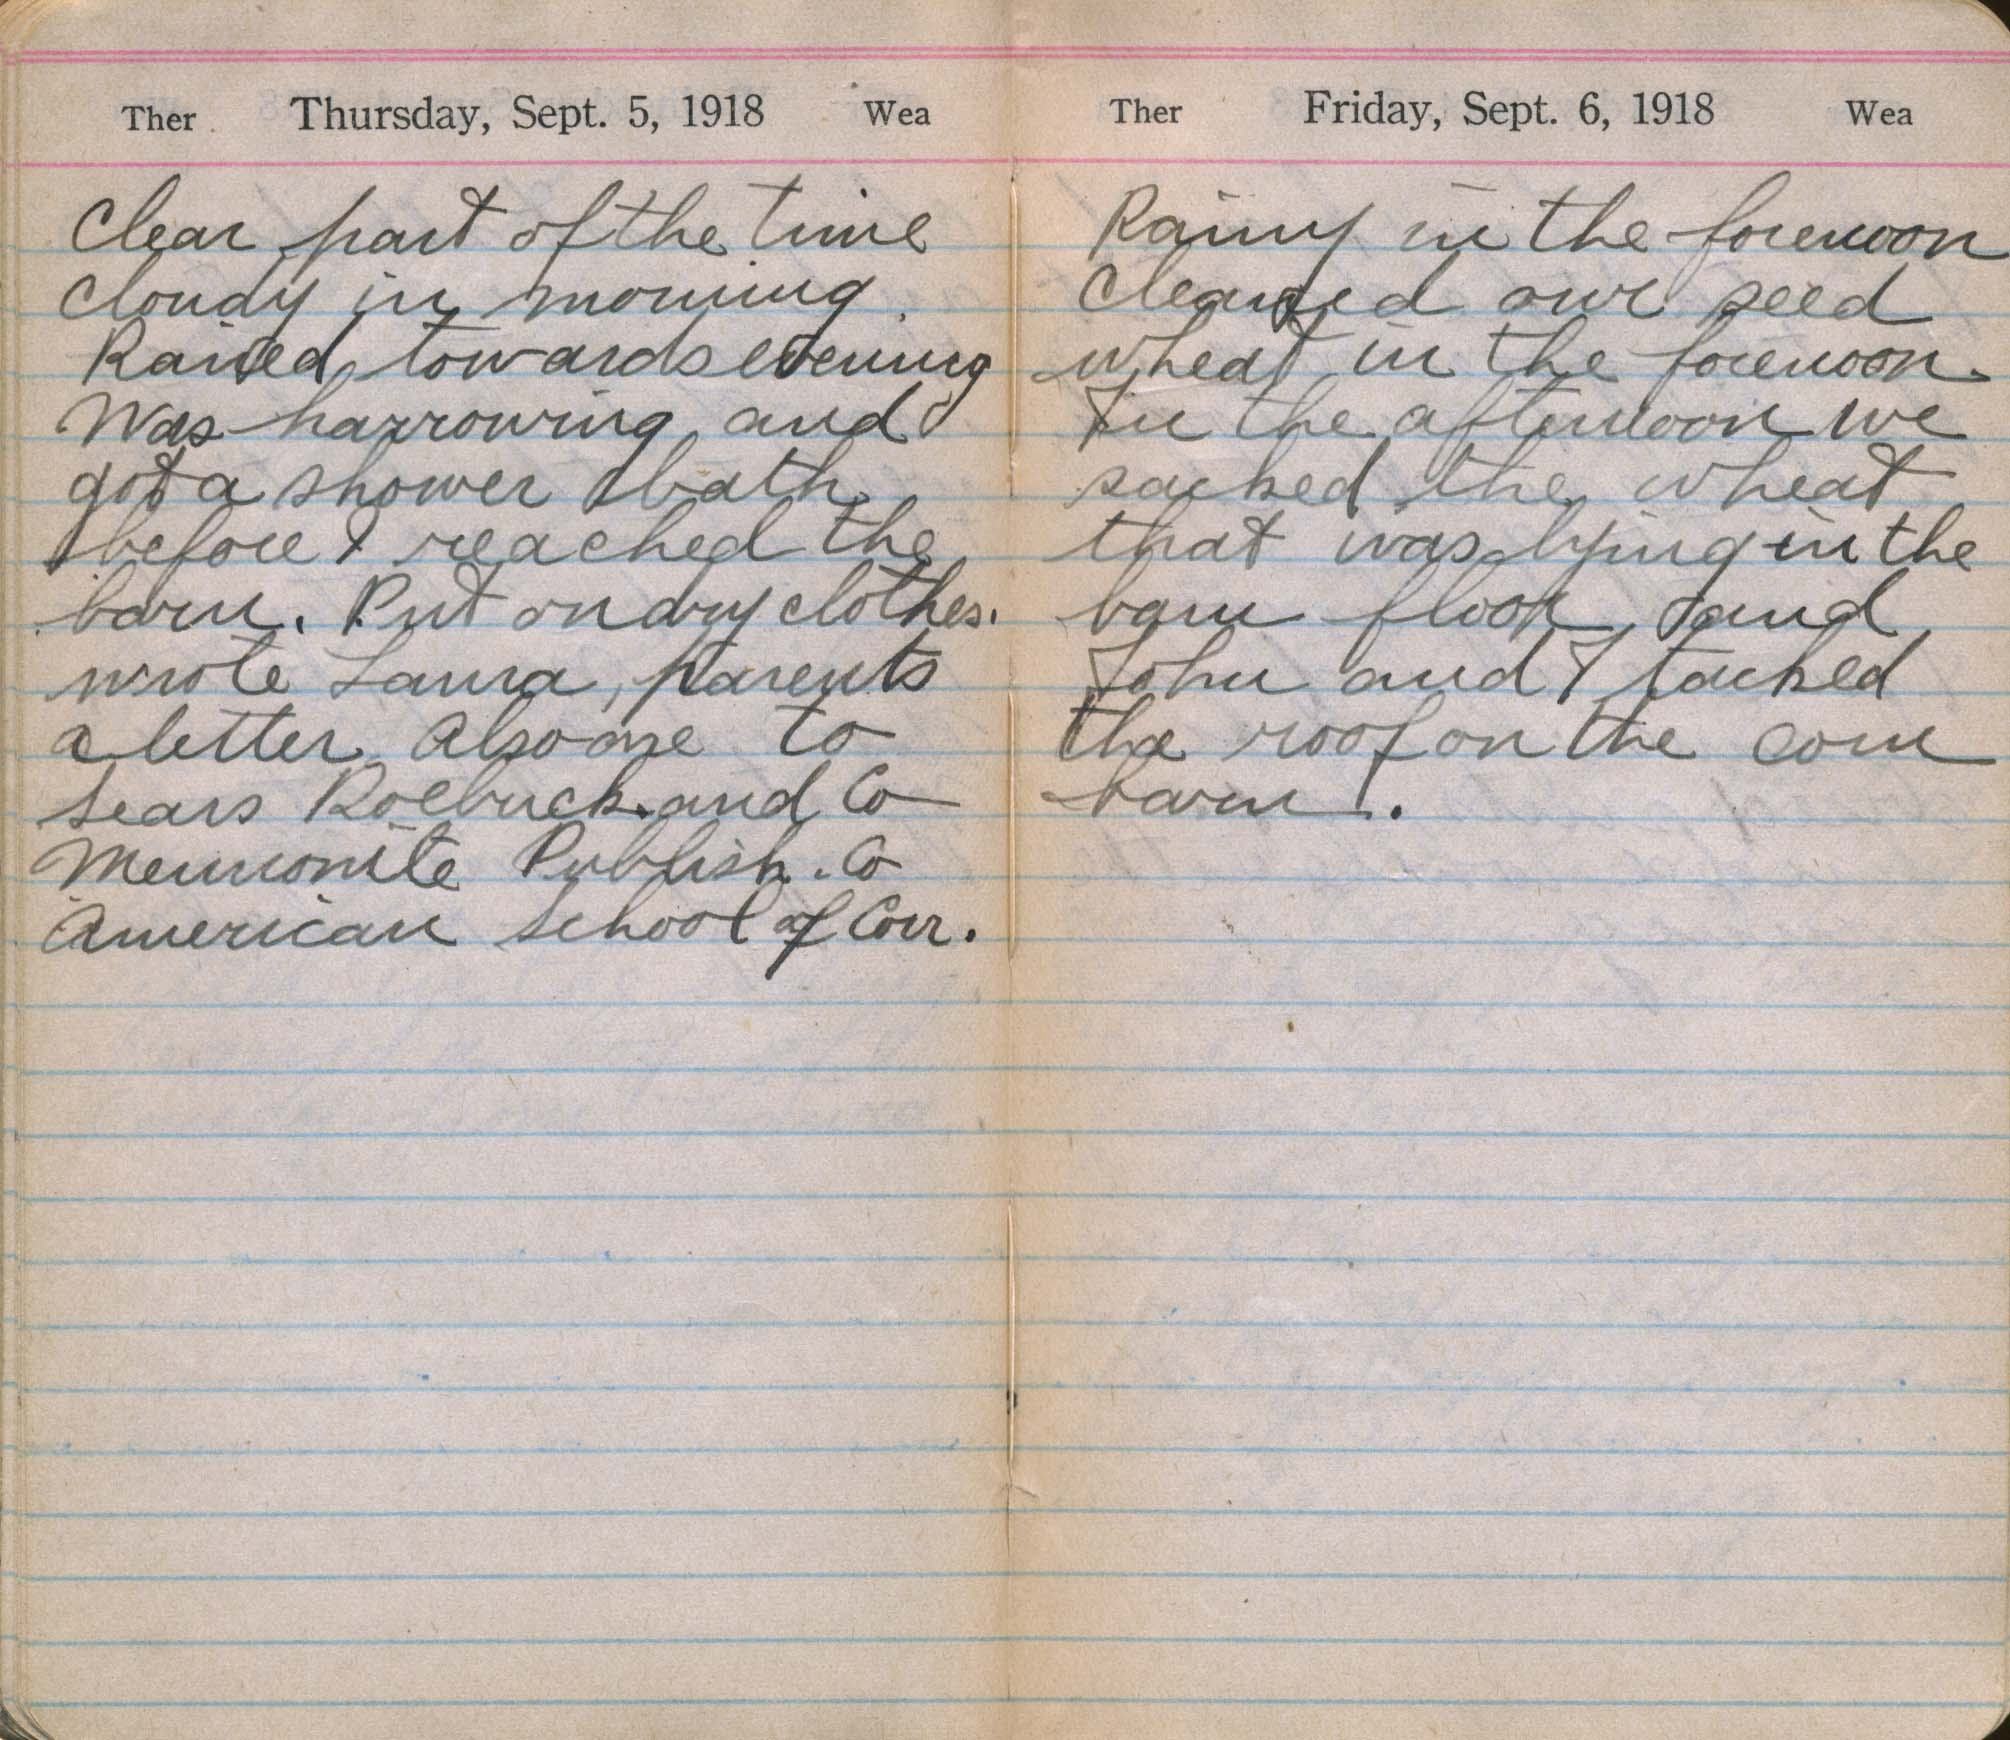 Ther Thursday, Sept. 5, 1918 Wea
Clear part of the time
Cloudy in morning.
Rained towards evening
Was harrowing and
got a shower bath
before I reached the
barn. Put on dry clothes.
wrote Laura, parents
a letter. Also one to
Sears Roebuck. and Co
Mennonite Publish. Co
American School of Corr.
Ther Friday, Sept. 6, 1918 Wea
Rainy in the forenoon
Cleaned our seed
wheat in the forenoon.
In the afternoon we
sacked the wheat
that was lying in the
barn floor and
John and I tacked
the roof on the corn
barn.